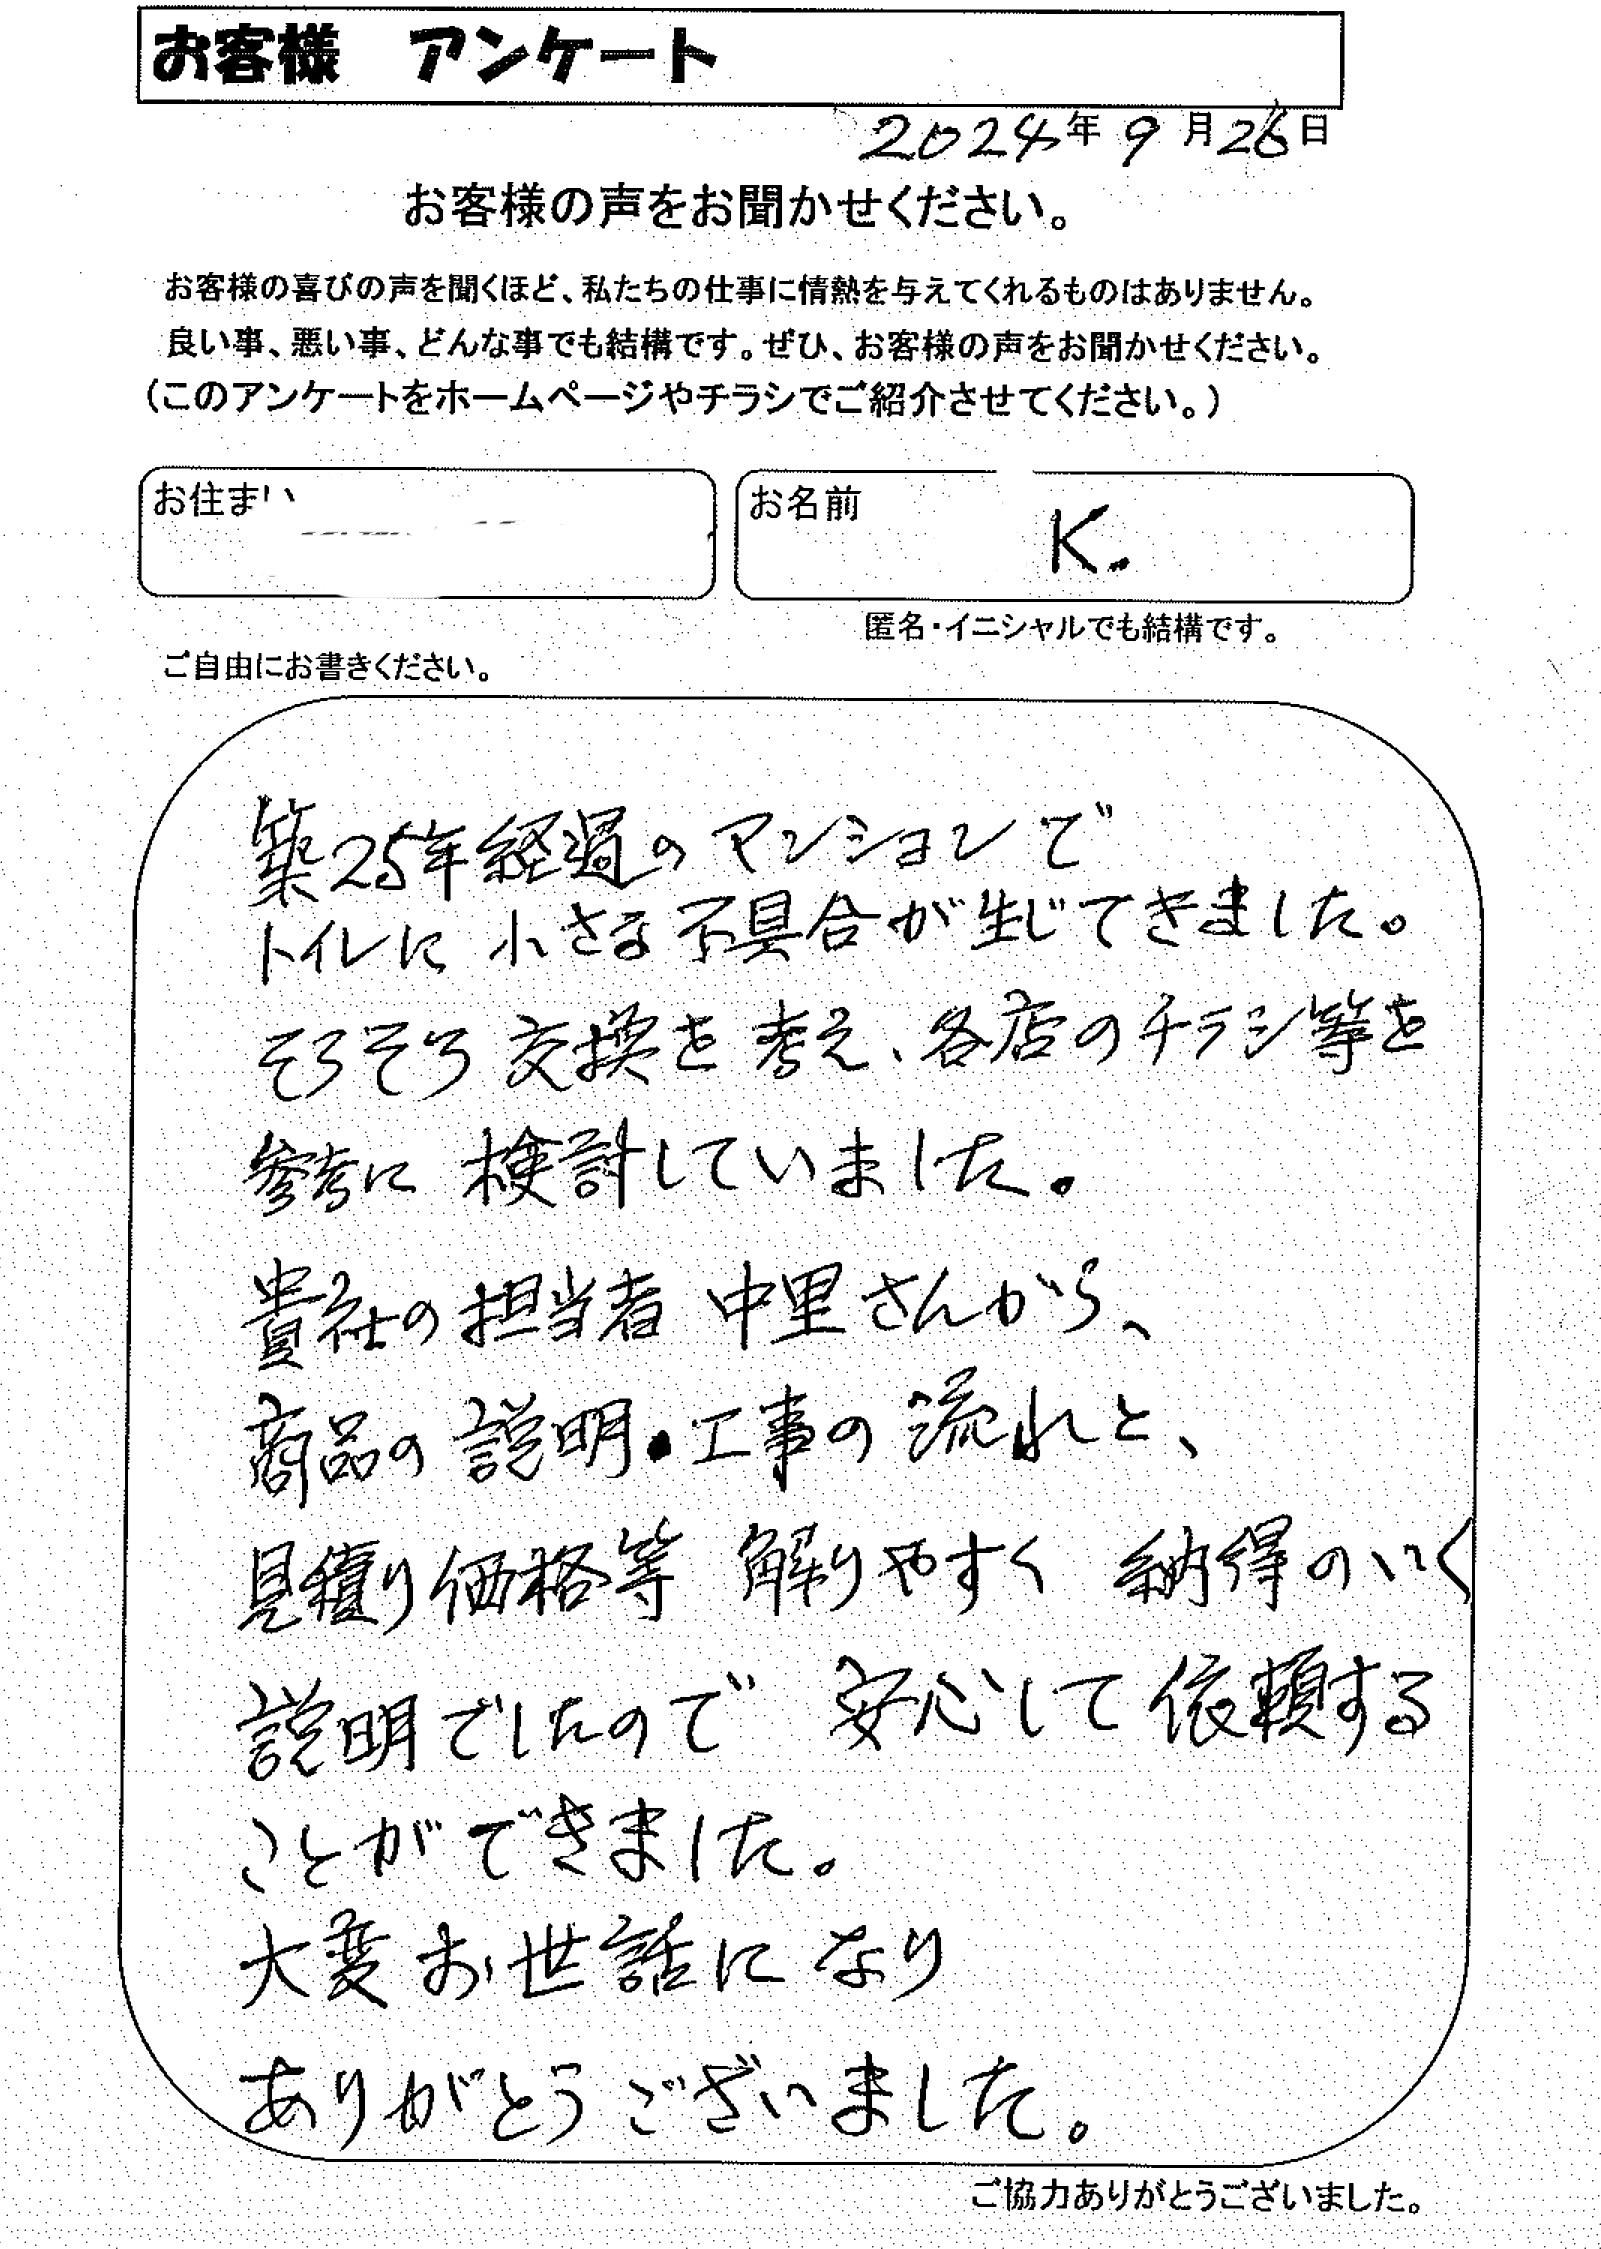 お客様　アンケート
2024年 9月26日
お客様の声をお聞かせください。
お客様の喜びの声を聞くほど、私たちの仕事に情熱を与えてくれるものはありません。
良い事、悪い事、どんな事でも結構です。ぜひ、お客様の声をお聞かせください。
（このアンケートをホームページやチラシでご紹介させてください。）
お住まい
お名前 K.
匿名・イニシャルでも結構です。
ご自由にお書きください。
築25年経過のマンションで
トイレに 小さな不具合が生じてきました。
そろそろ 交換を 考え、各店のチラシ等を
参考に 検討していました。
貴社の担当者 中里さんから、
商品の説明・工事の流れと、
見積り価格等 解りやすく 納得のいく
説明でしたので 安心して依頼する
ことができました。
大変お世話になり
ありがとうございました。
ご協力ありがとうございました。